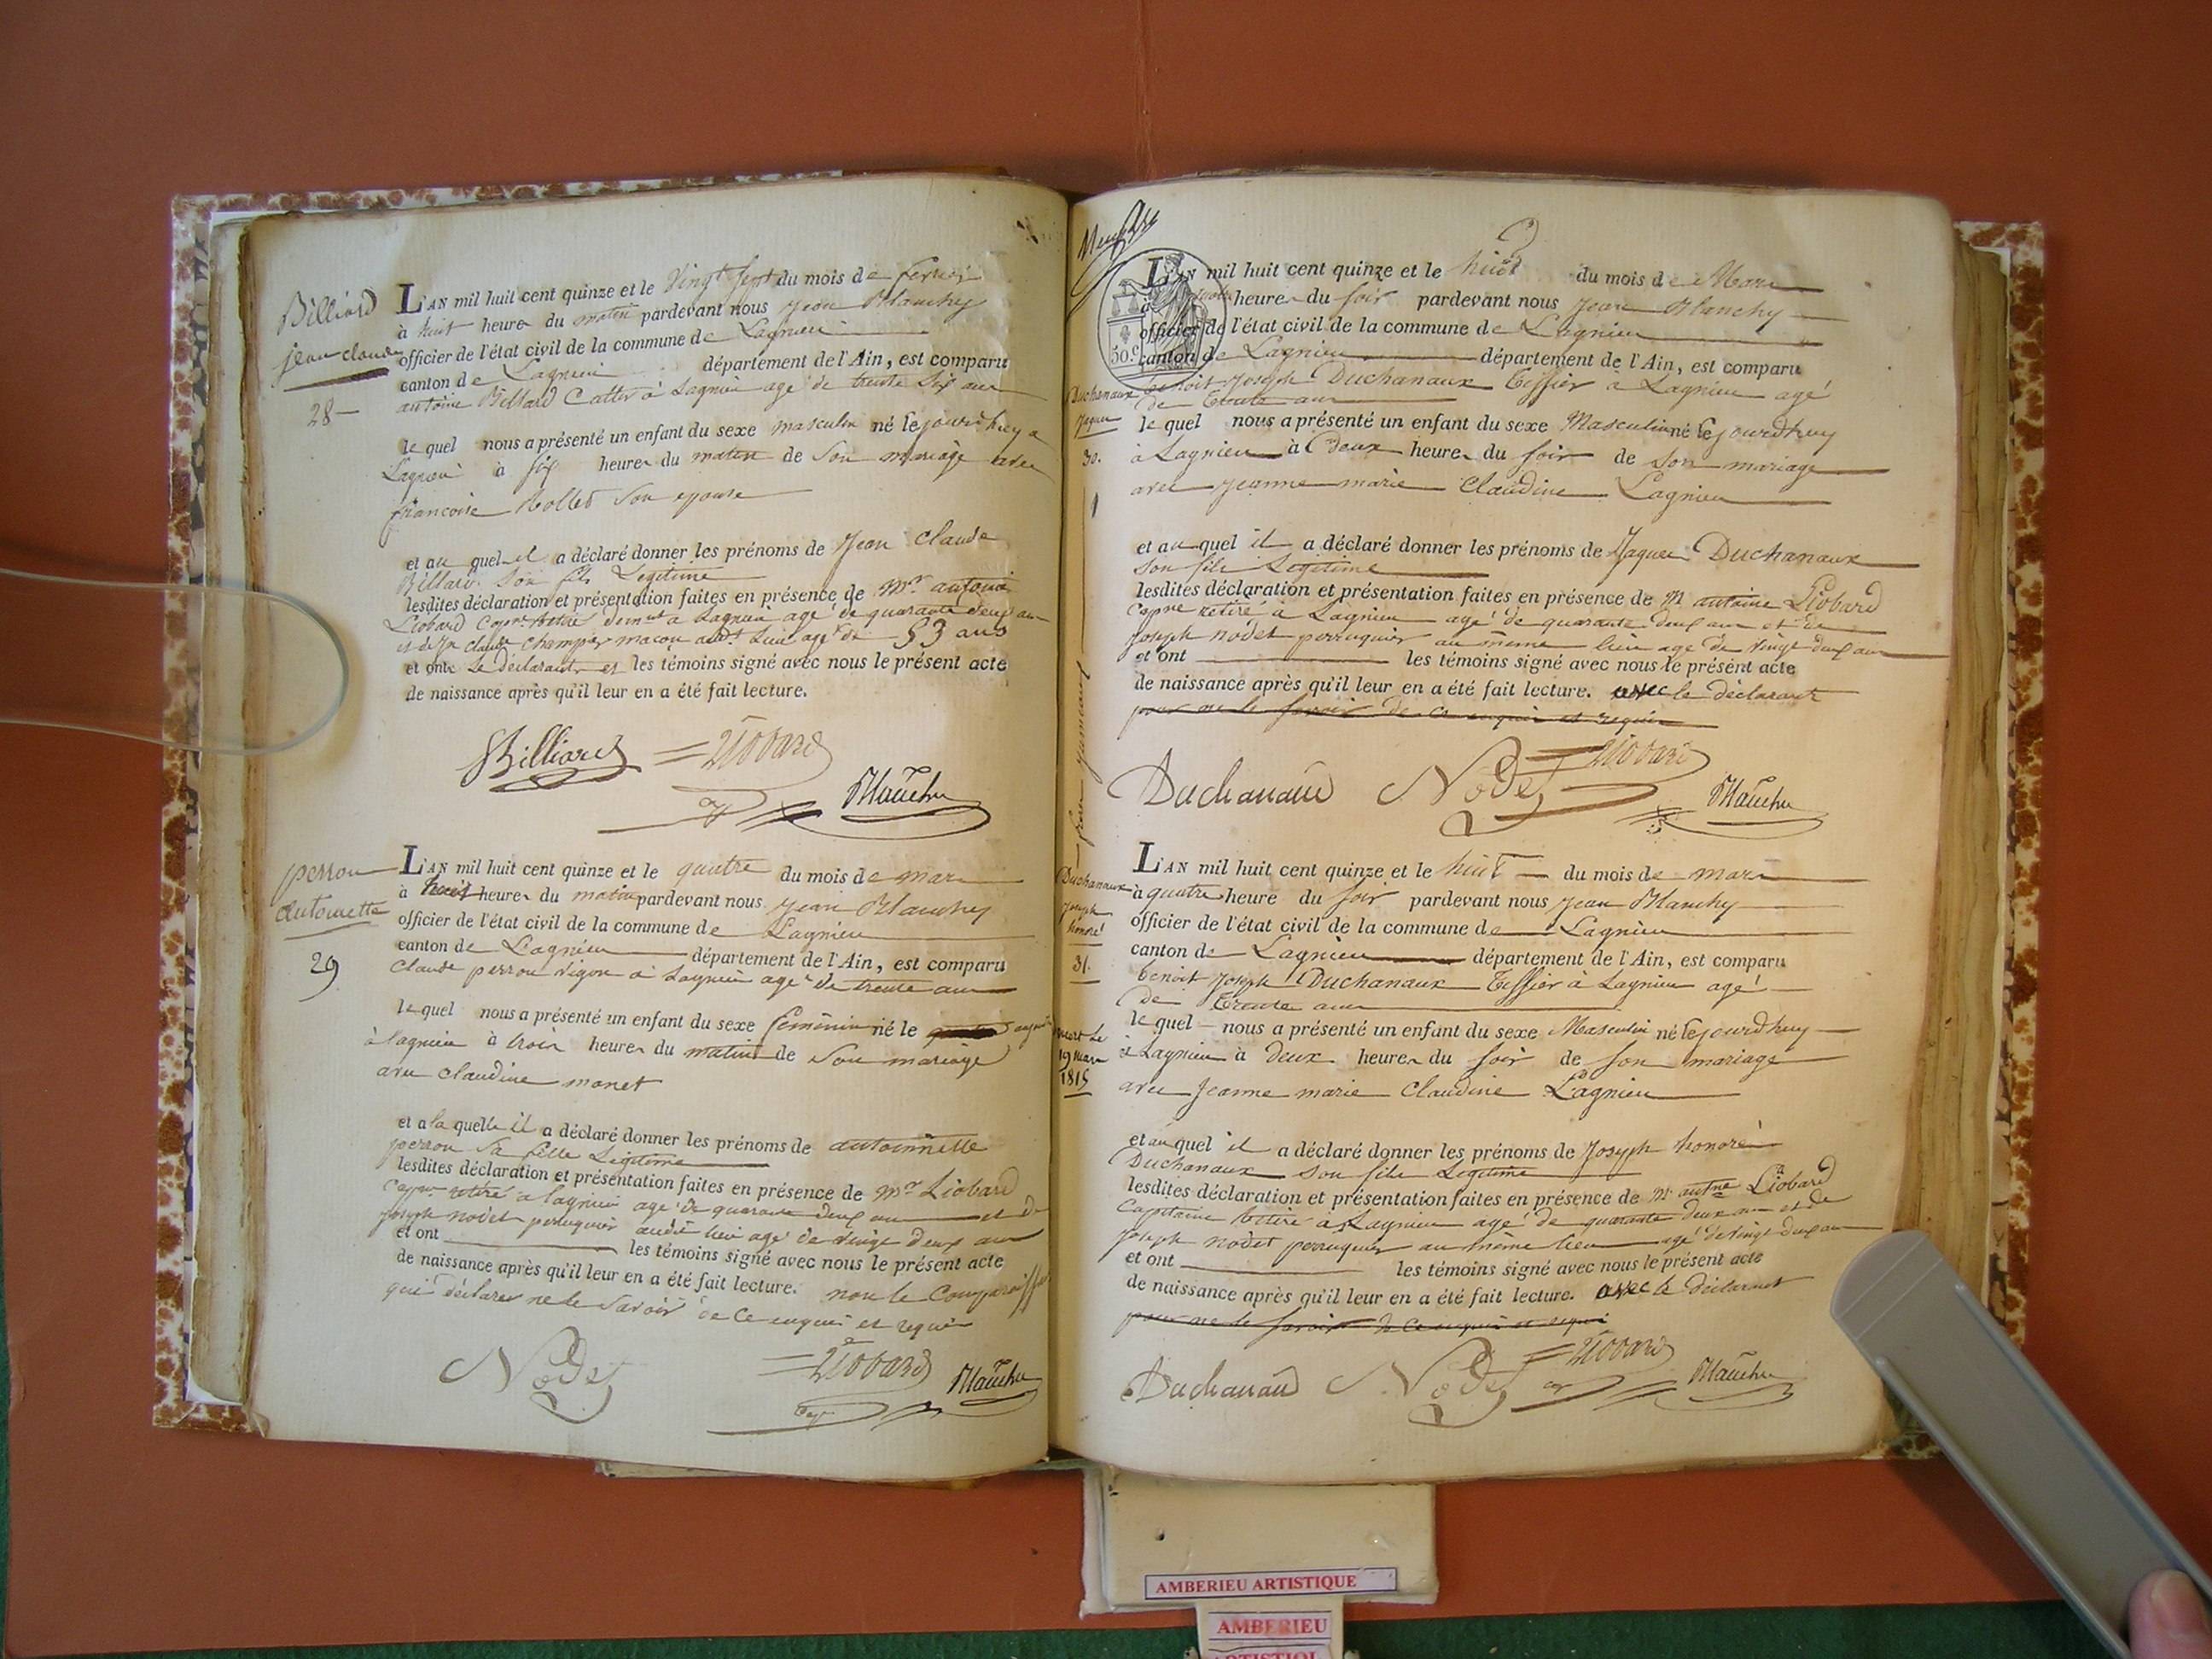 Billiard
jean claude
28
L'AN mil huit cent quinze et le vingt sept du mois de fevrier
à huit heures du matin pardevant nous Jean Blanchy
officier de l'état civil de la commune de Lagnieu
canton de Lagnieu département de l'Ain, est comparu
antoine Billiard à Lagnieu agé de trente six ans
le quel nous a présenté un enfant du sexe masculin né le jourdhuy a
Lagnieu à six heures du matin de son mariage avec
francoise Rollet son epouse
et au quel il a déclaré donner les prénoms de Jean Claude
Billiard son fils Legitime
lesdites déclaration et présentation faites en présence de Mr antoine
Liobard capne retiré demt a Lagnieu agé de quarante deux ans
et de Jn claude champier macon audt lieu agé de 53 ans
et ont Le déclarant et les témoins signé avec nous le présent acte
de naissance après qu'il leur en a été fait lecture.
Billiard Liobard
Blanchy
perron
antoinette
29
L'AN mil huit cent quinze et le quatre du mois de mars
à huit heures du matin pardevant nous Jean Blanchy
officier de l'état civil de la commune de Lagnieu
canton de Lagnieu département de l'Ain, est comparu
Claude perron vigon à Lagnieu agé de trente ans
le quel nous a présenté un enfant du sexe feminin né le
à lagnieu à trois heures du matin de son mariage
avec claudine monet
et a la quelle il a déclaré donner les prénoms de antoinette
perron sa fille Legitime
lesdites déclaration et présentation faites en présence de Mr Liobard
capne retiré a lagnieu agé de quarante deux ans et de
joseph nodet perruquier audit lieu agé de vingt deux ans
et ont les témoins signé avec nous le présent acte
de naissance après qu'il leur en a été fait lecture. non le comparaissant
qui déclarer ne le savoir de ce enquis et requis
Nodet Liobard Blanchy
50 c
Duchanaux
Jaques
30.
L'AN mil huit cent quinze et le huit du mois de Mars
à quatre heures du soir pardevant nous Jean Blanchy
officier de l'état civil de la commune de Lagnieu
canton de Lagnieu département de l'Ain, est comparu
benoit Joseph Duchanaux tissier à Lagnieu agé
de trente ans
le quel nous a présenté un enfant du sexe Masculin né le jourdhuy
à Lagnieu à deux heures du soir de son mariage
avec Jeanne marie Claudine Lagnieu
et au quel il a déclaré donner les prénoms de Jaques Duchanaux
son fils Legitime
lesdites déclaration et présentation faites en présence de M antoine Liobard
capne retiré à Lagnieu agé de quarante deux ans et de
Joseph nodet perruquier au même lieu agé de vingt deux ans
et ont les témoins signé avec nous le présent acte
de naissance après qu'il leur en a été fait lecture. avec le déclarant
pour ne le savoir de ce enquis et requis
Duchanaux Nodet Liobard Blanchy
freres jumeaux
Duchanaux
Joseph
honoré
31.
mort le
19 mars
1815
L'AN mil huit cent quinze et le huit du mois de mars
à quatre heure du soir pardevant nous Jean Blanchy
officier de l'état civil de la commune de Lagnieu
canton de Lagnieu département de l'Ain, est comparu
benoit Joseph Duchanaux tissier à Lagnieu agé
de trente ans
le quel nous a présenté un enfant du sexe Masculin né le jourdhuy
à Lagnieu à deux heures du soir de son mariage
avec Jeanne marie Claudine Lagnieu
et au quel il a déclaré donner les prénoms de Joseph honoré
Duchanaux son fils Legitime
lesdites déclaration et présentation faites en présence de M antne Liobard
Capitaine retiré à Lagnieu agé de quarante deux ans et de
joseph nodet perruquier au même lieu agé de vingt deux ans
et ont les témoins signé avec nous le présent acte
de naissance après qu'il leur en a été fait lecture. avec le déclarant
pour ne le savoir de ce enquis et requis
Duchanaux Nodet Liobard Blanchy
AMBERIEU ARTISTIQUE
AMBERIEU
ARTISTIQUE